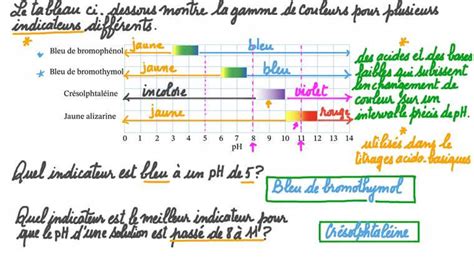 Le tableau ci. dessous montre la gamme de couleurs pour plusieurs
indicateurs différents.
* jaune bleu
Bleu de bromophénol
* jaune bleu
Bleu de bromothymol
incolore violet
Crésolphtaléine
jaune rouge
Jaune alizarine
0 1 2 3 4 5 6 7 8 9 10 11 12 13 14
pH
* des acides et des bases
faibles qui subissent
un changement de
couleur sur un
intervalle précis de pH.
* utilisés dans le
titrages acido-basiques
Quel indicateur est bleu à un pH de 5?
Bleu de bromothymol
Quel indicateur est le meilleur indicateur pour
que le pH d'une solution est passé de 8 à 11?
Crésolphtaléine